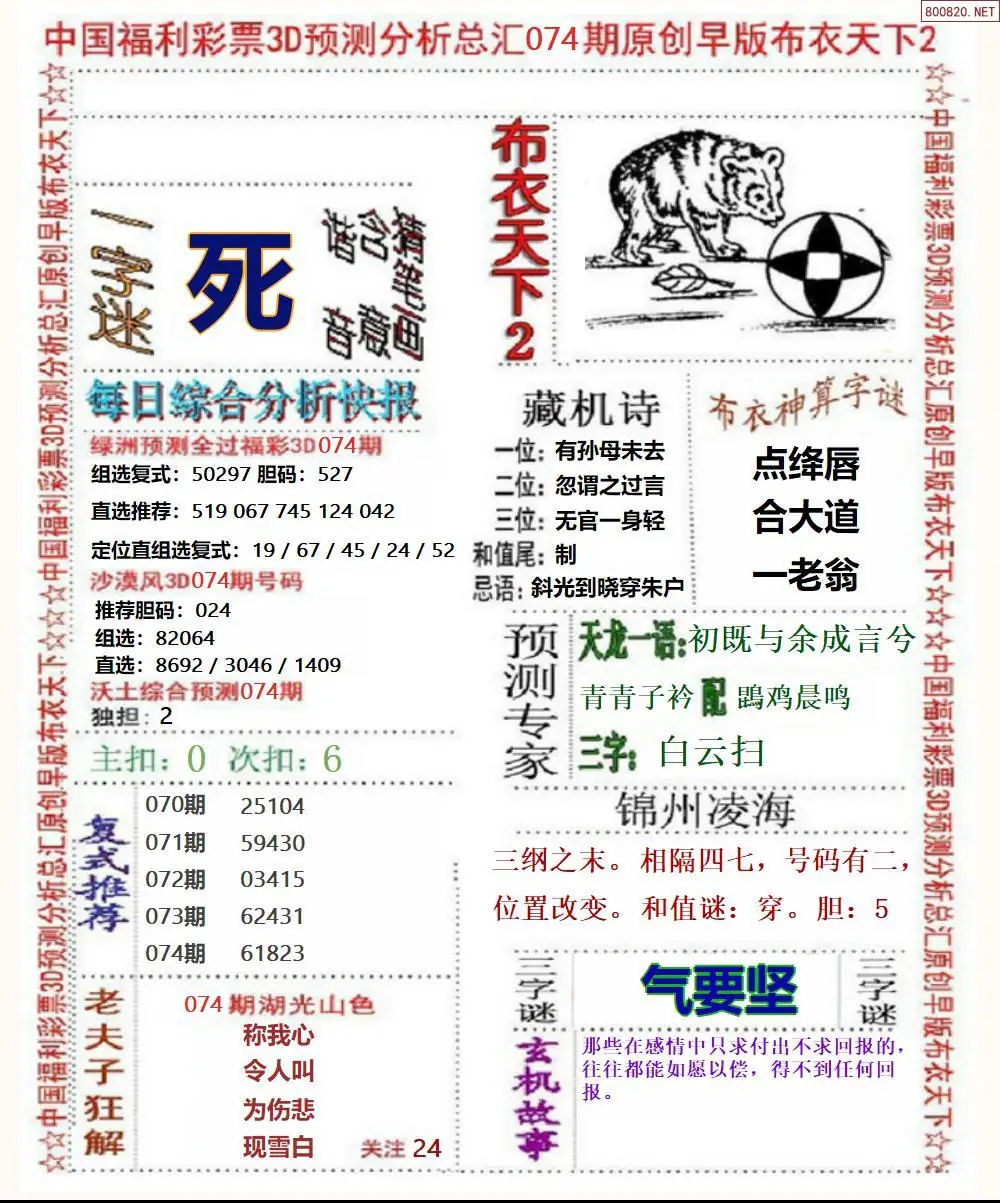 800820.NET
中国福利彩票3D预测分析总汇074期原创早版布衣天下2
☆☆中国福利彩票3D预测分析总汇原创早版布衣天下☆☆☆☆中国福利彩票3D预测分析总汇原创早版布衣天下☆☆
一字迷
死
猜笔画
含意
谐音
布衣天下2
每日综合分析快报
绿洲预测全过福彩3D074期
组选复式：50297 胆码：527
直选推荐：519 067 745 124 042
定位直组选复式：19 / 67 / 45 / 24 / 52
沙漠风3D074期号码
推荐胆码：024
组选：82064
直选：8692 / 3046 / 1409
沃土综合预测074期
独担：2
主扣：0 次扣：6
复式推荐
070期 25104
071期 59430
072期 03415
073期 62431
074期 61823
老夫子狂解
074期湖光山色
称我心
令人叫
为伤悲
现雪白
关注 24
藏机诗
一位：有孙母未去
二位：忽谓之过言
三位：无官一身轻
和值尾：制
忌语：斜光到晓穿朱户
布衣神算字谜
点绛唇
合大道
一老翁
预测专家
天龙一语：初既与余成言兮
青青子衿 配 鵾鸡晨鸣
三字：白云扫
锦州凌海
三纲之末。相隔四七，号码有二，
位置改变。和值谜：穿。胆：5
三字谜
气要坚
三字谜
玄机故事
那些在感情中只求付出不求回报的，
往往都能如愿以偿，得不到任何回
报。
☆☆中国福利彩票3D预测分析总汇原创早版布衣天下☆☆☆☆中国福利彩票3D预测分析总汇原创早版布衣天下☆☆